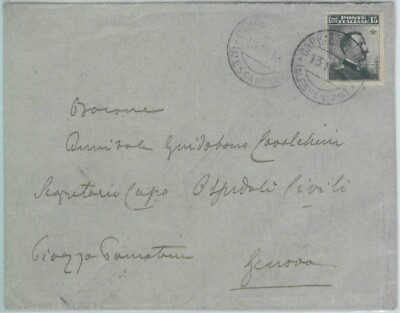 POSTE ITALIANE 15
Barone
Annibale Guidobono Cavalchini
Segretario Capo Ospedali Civili
Piazza Pammatone
Genova